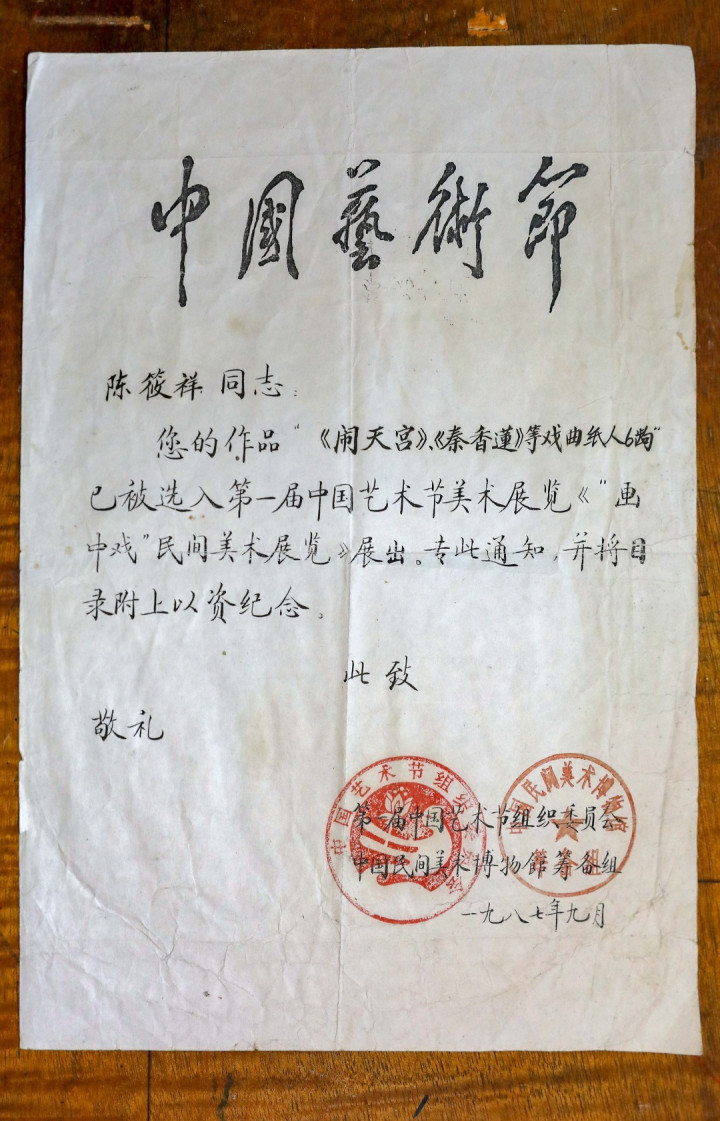 中國藝術節
陈筱祥同志：
您的作品“《闹天宫》、《秦香蓮》等戏曲纸人6齣”
已被选入第一届中国艺术节美术展览《“画
中戏”民间美术展览》展出。专此通知，并将目
录附上以资纪念。
此致
敬礼
第一届中国艺术节组织委员会
中国民间美术博物館筹备组
一九八七年九月